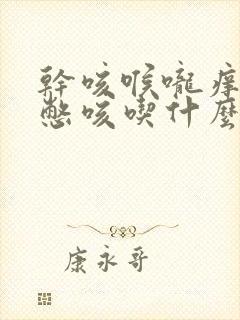 幹咳喉嚨痒
憋咳喫什麼
康永哥